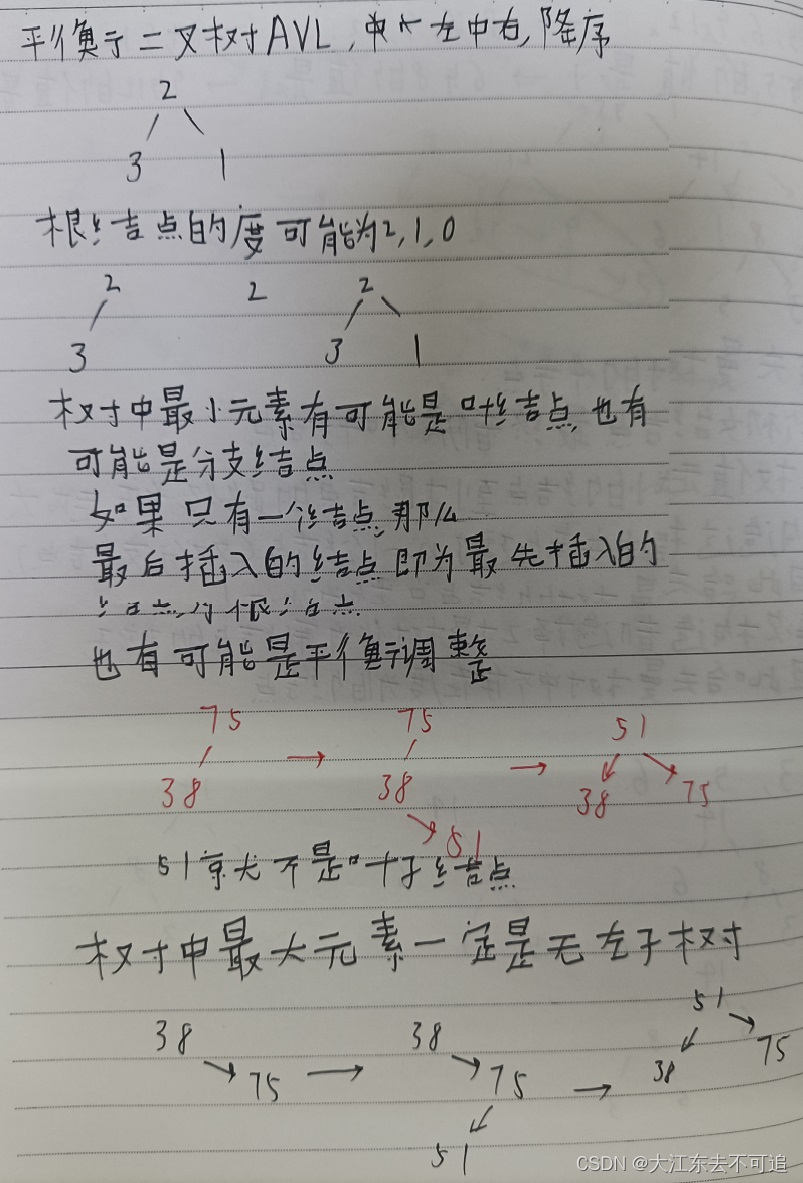 平衡于二叉树AVL,中个左中右,降序
2
3 1
根结点的度可能为2,1,0
2 2 2
3 3 1
树中最小元素有可能是叶结点,也有
可能是分支结点
如果只有一个结点,那么
最后插入的结点即为最先插入的
也有可能是平衡调整
75 → 75 → 51
38 38 38 75
51
51 不是叶子结点
树中最大元素一定是无左子树
38 38 51
75 → 75 → 38 75
51
CSDN @大江东去不可追